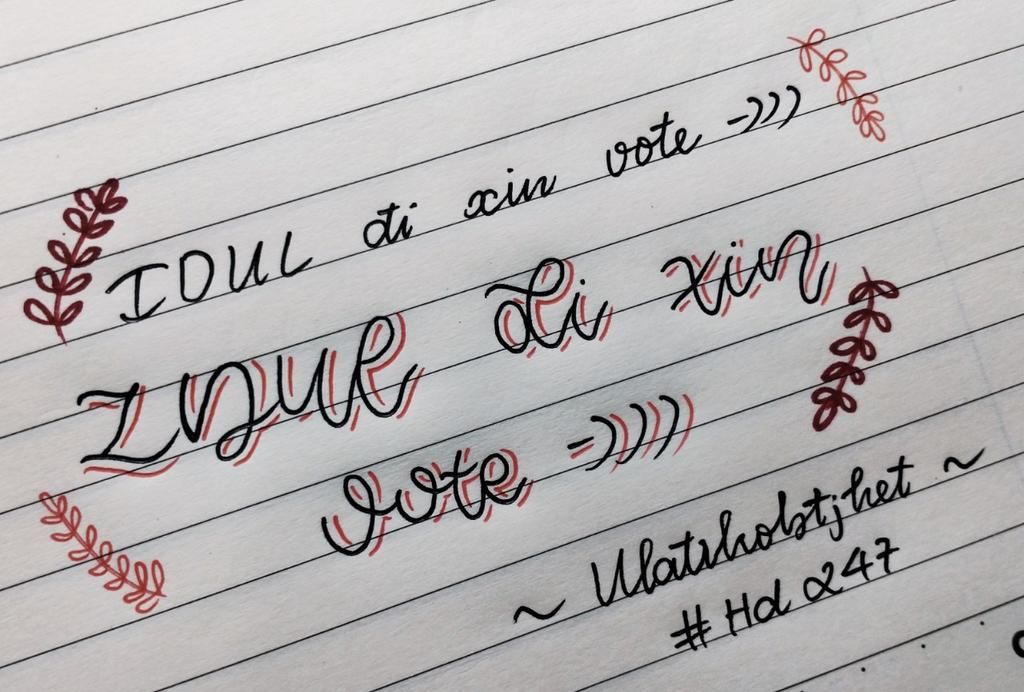 IDUL đi xin vote -)))
IDUL đi xin
vote =))))
~ Ulatrkolstjhet ~
# Hd 247